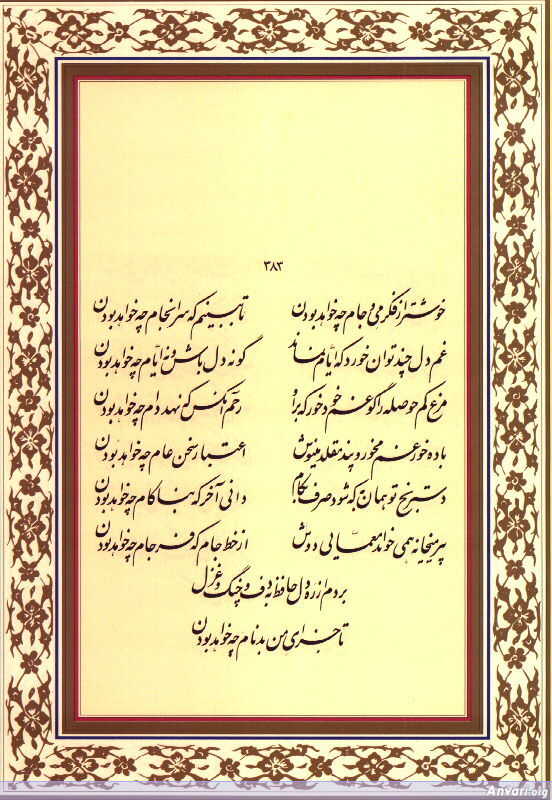 ۳۸۳
خوشتر از فکر می و جام چه خواهد بودن تا ببینیم که سرانجام چه خواهد بودن
غم دل چند توان خورد که ایام نماند گو نه دل باش و نه ایام چه خواهد بودن
مرغ کم حوصله را گو غم خود خور که برو رحم آنکس که نهد دام چه خواهد بودن
باده خور غم مخور و پند مقلد منیوش اعتبار سخن عام چه خواهد بودن
دسترنج تو همان به که شود صرف بکام دانی آخر که بناکام چه خواهد بودن
پیر میخانه همی خواند معمایی دوش از خط جام که فرجام چه خواهد بودن
بردم از ره دل حافظ به دف و چنگ و غزل
تا جزای من بدنام چه خواهد بودن
Anvari.org